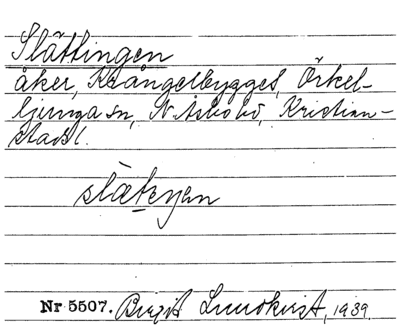 Slättingen
åker, Krångelbygget, Örkel-
ljunga sn, N. Åsbo hd, Kristian-
stads l.
slætenen
Nr 5507. Birgit Lundkvist, 1939.